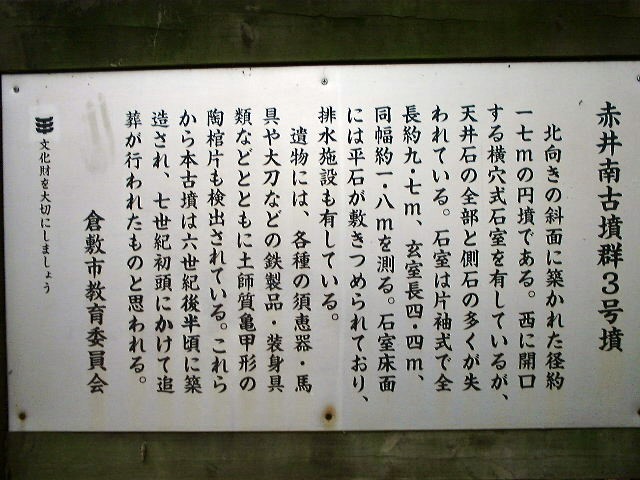 赤井南古墳群3号墳
北向きの斜面に築かれた径約
一七mの円墳である。西に開口
する横穴式石室を有しているが、
天井石の全部と側石の多くが失
われている。石室は片袖式で全
長約九・七m、玄室長四・四m、
同幅約一・八mを測る。石室床面
には平石が敷きつめられており、
排水施設も有している。
遺物には、各種の須恵器・馬
具や大刀などの鉄製品・装身具
類などとともに土師質亀甲形の
陶棺片も検出されている。これら
から本古墳は六世紀後半頃に築
造され、七世紀初頭にかけて追
葬が行われたものと思われる。
倉敷市教育委員会
文化財を大切にしましょう